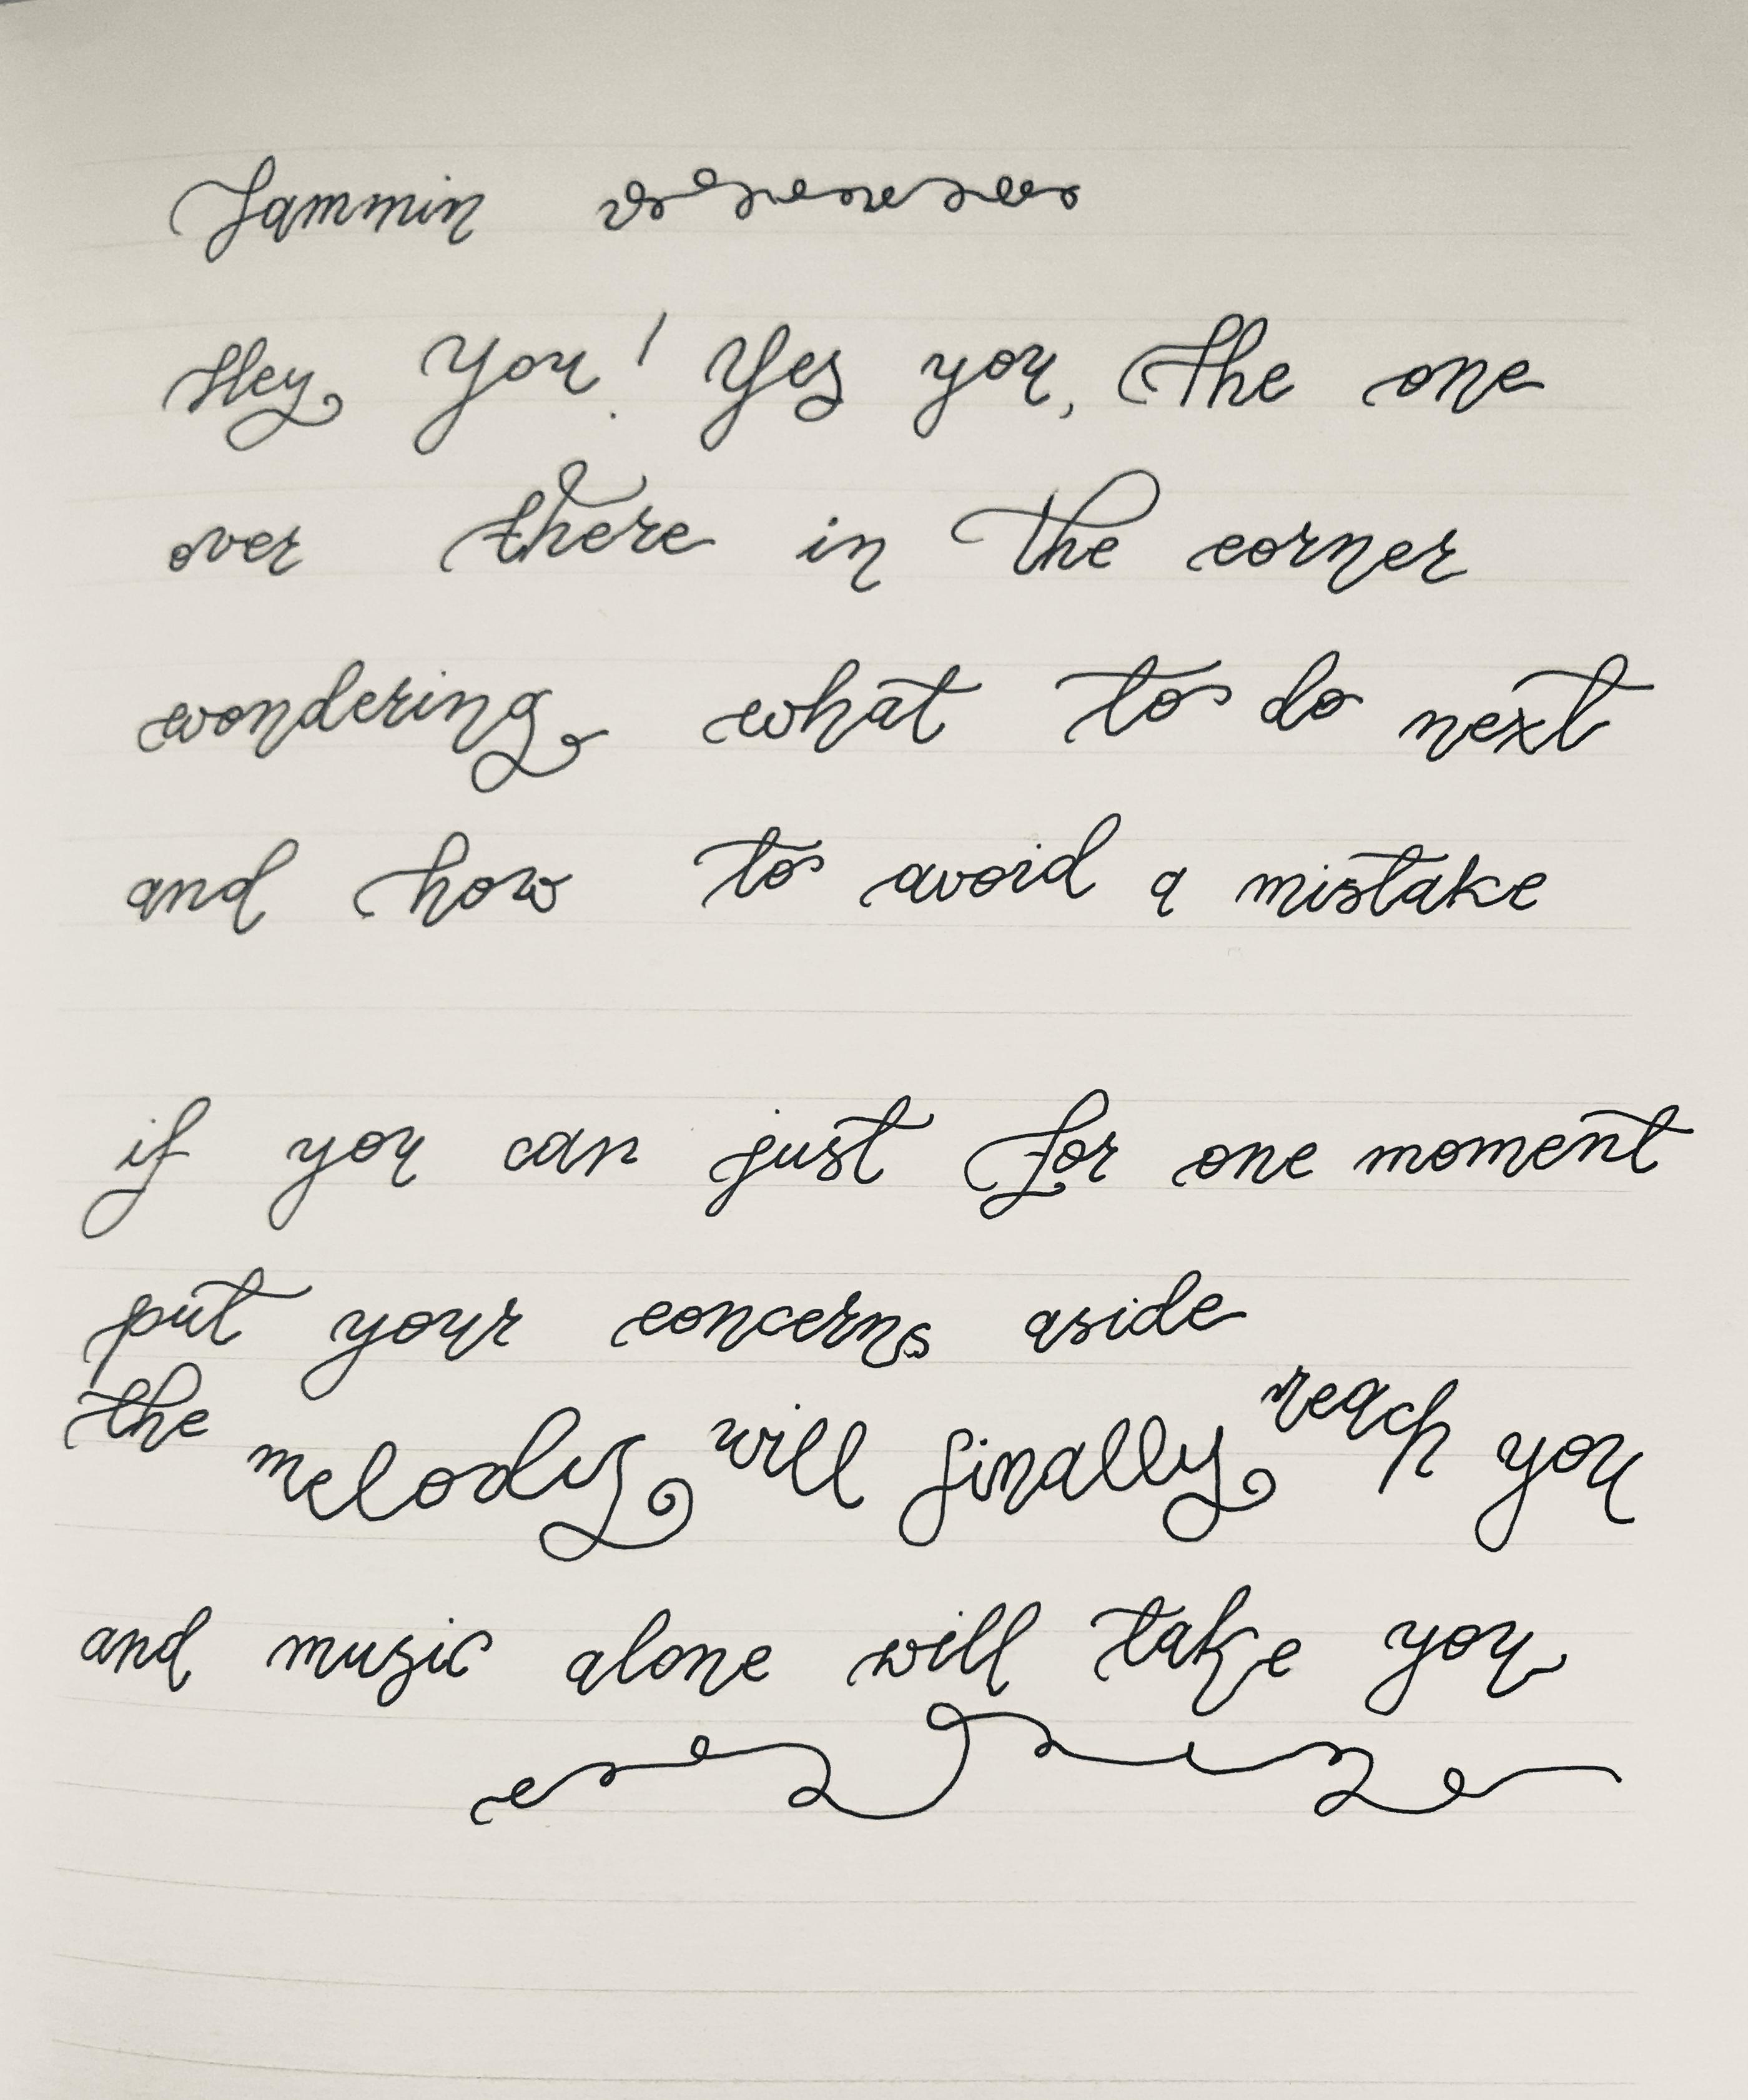 Jammin
Hey You! Yes you, the one
over there in the corner
wondering what to do next
and how to avoid a mistake
if you can just for one moment
put your concerns aside
the melody will finally reach you
and music alone will take you